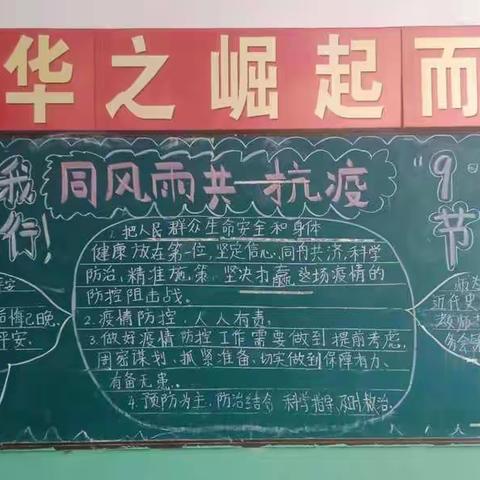 华之崛起而
我
行!
同风雨共抗疫
"9
节
1.把人民群众生命安全和身体
健康放在第一位,坚定信心,同舟共济,科学
防治,精准施策,坚决打赢这场疫情的
防控阻击战。
2.疫情防控,人人有责。
3.做好疫情防控工作需要做到提前考虑,
周密谋划,抓紧准备,切实做到保障有力、
有备无患。
4.预防为主,防治结合,科学指导,及时救治。
安
后悔已晚。
平安。
近代史